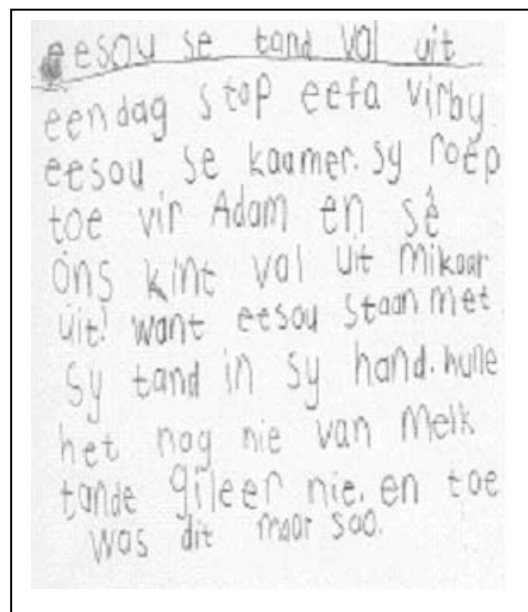 eesou se tand val uit
eendag stap eefa virby
eesou se kaamer. sy roep
toe vir Adam en sê
ons kint val uit mikaar
uit! want eesou staan met
sy tand in sy hand. hulle
het nog nie van melk
tande gileer nie. en toe
was dit maar soo.